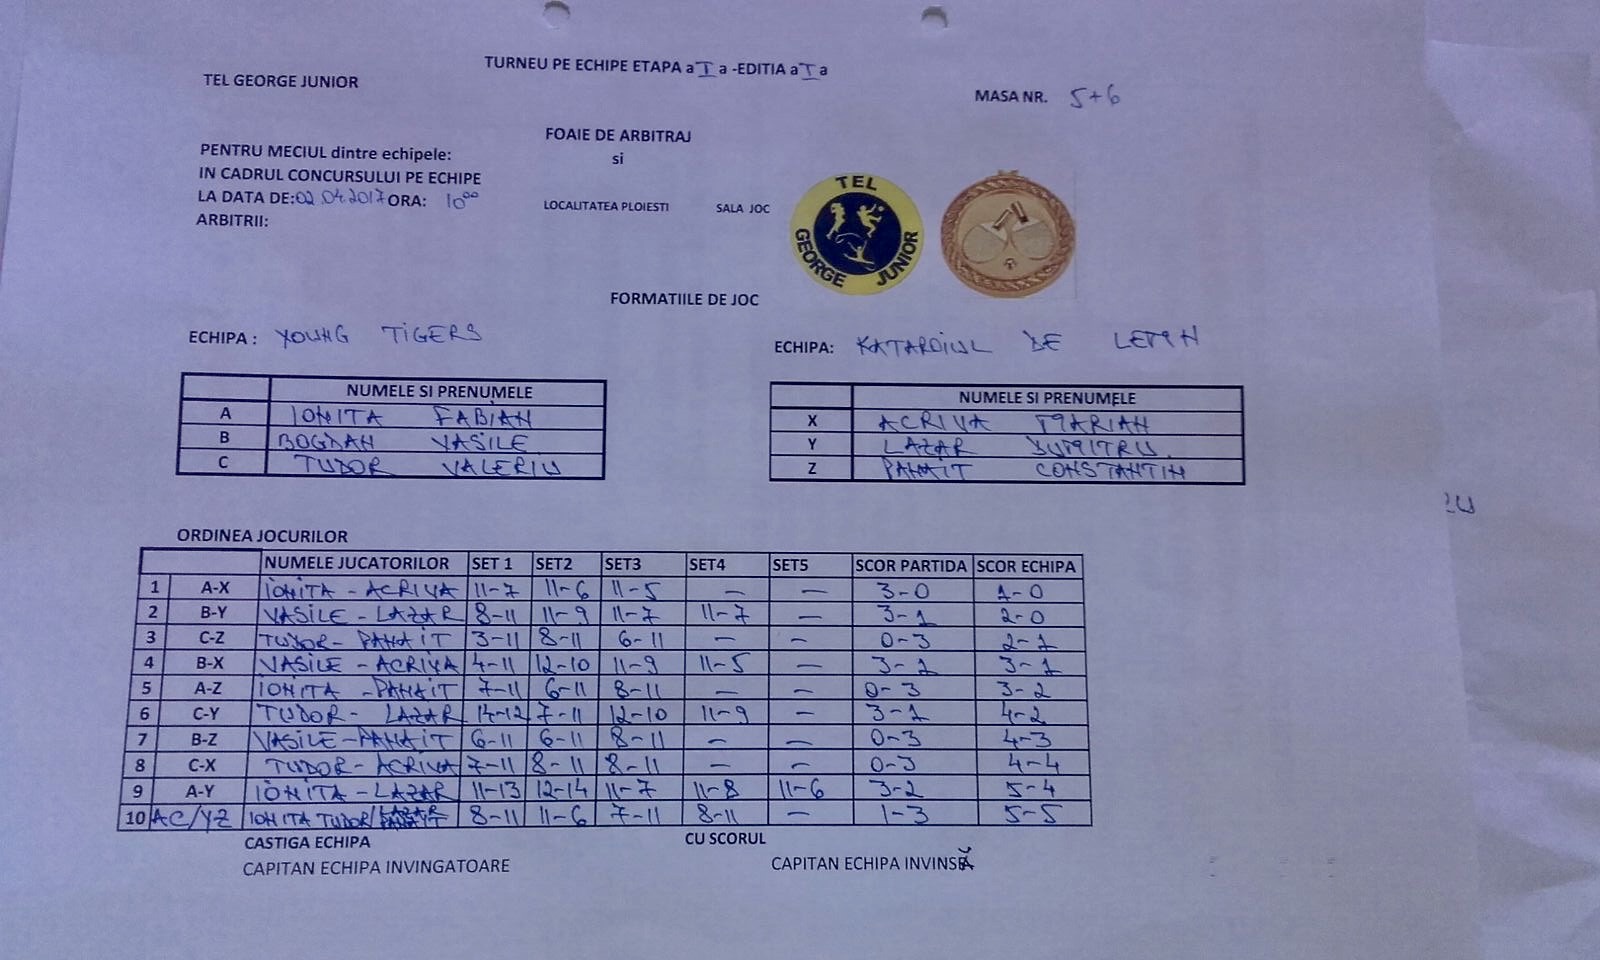 TURNEU PE ECHIPE ETAPA a I a -EDITIA a I a
TEL GEORGE JUNIOR
MASA NR. 5+6
FOAIE DE ARBITRAJ
si
PENTRU MECIUL dintre echipele:
IN CADRUL CONCURSULUI PE ECHIPE
LA DATA DE: 02.04.2017 ORA: 10⁰⁰
LOCALITATEA PLOIESTI SALA JOC
ARBITRII:
TEL GEORGE JUNIOR
FORMATIILE DE JOC
ECHIPA: YOUNG TIGERS
NUMELE SI PRENUMELE
A IONITA FABIAN
B BOGDAN VASILE
C TUDOR VALERIU
ECHIPA: KATARDIUL DE LEMN
NUMELE SI PRENUMELE
X ACRIVA MARIAN
Y LAZAR DUMITRU
Z PANAIT CONSTANTIN
ORDINEA JOCURILOR
NUMELE JUCATORILOR SET 1 SET2 SET3 SET4 SET5 SCOR PARTIDA SCOR ECHIPA
1 A-X IONITA - ACRIVA 11-7 11-6 11-5 - - 3-0 1-0
2 B-Y VASILE - LAZAR 8-11 11-9 11-7 11-7 - 3-1 2-0
3 C-Z TUDOR - PANAIT 3-11 8-11 6-11 - - 0-3 2-1
4 B-X VASILE - ACRIVA 4-11 12-10 11-9 11-5 - 3-1 3-1
5 A-Z IONITA - PANAIT 7-11 6-11 8-11 - - 0-3 3-2
6 C-Y TUDOR - LAZAR 14-12 7-11 12-10 11-9 - 3-1 4-2
7 B-Z VASILE - PANAIT 6-11 6-11 8-11 - - 0-3 4-3
8 C-X TUDOR - ACRIVA 7-11 8-11 8-11 - - 0-3 4-4
9 A-Y IONITA - LAZAR 11-13 12-14 11-7 11-8 11-6 3-2 5-4
10 AC/YZ IONITA TUDOR/LAZAR PANAIT 8-11 11-6 7-11 8-11 - 1-3 5-5
CASTIGA ECHIPA CU SCORUL
CAPITAN ECHIPA INVINGATOARE CAPITAN ECHIPA INVINSĂ